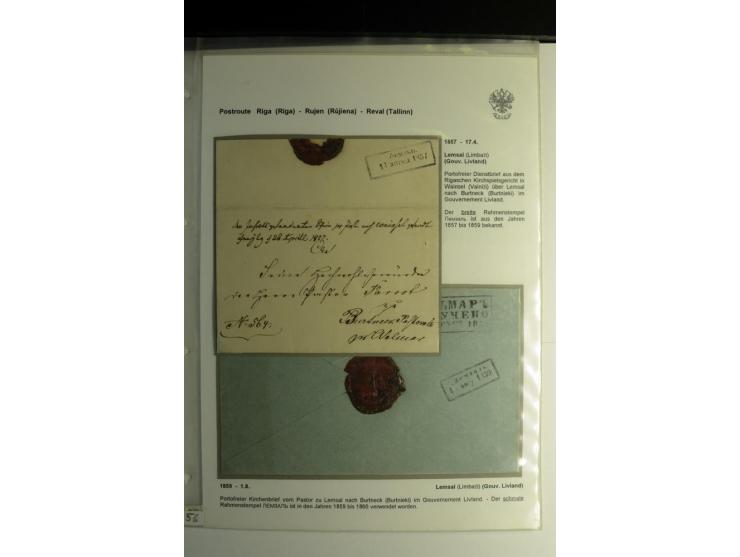 Postroute Riga (Rīga) - Rujen (Rūjiena) - Reval (Tallinn)
1857 - 17.4.
Lemsal (Limbaži)
(Gouv. Livland)
Portofreier Dienstbrief aus dem
Rigaschen Kirchspielsgericht in
Wainsel (Vainiži) über Lemsal
nach Burtneck (Burtnieki) im
Gouvernement Livland.
Der breite Rahmenstempel
Лемзаль ist aus den Jahren
1857 bis 1859 bekannt.
1857
Seine
der Herrn Pastor
zu
№ 564.
Burtneck Pastorat
pr Wolmar
ЬМАРЪ
УЧЕНО
1859 - 1.8.
Lemsal (Limbaži) (Gouv. Livland)
Portofreier Kirchenbrief vom Pastor zu Lemsal nach Burtneck (Burtnieki) im Gouvernement Livland. - Der schmale
Rahmenstempel ЛЕМЗАЛЬ ist in den Jahren 1859 bis 1860 verwendet worden.
56